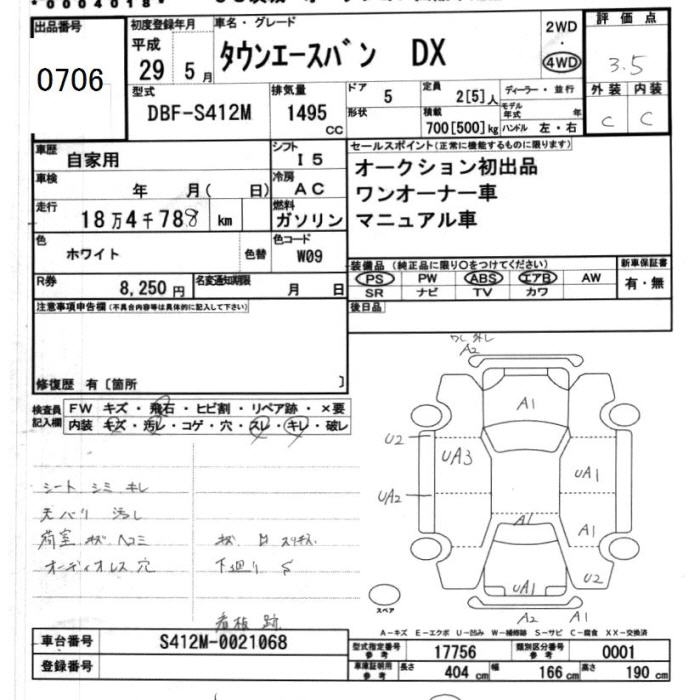 *0004018*
出品番号
0706
初度登録年月
平成
29年 5月
車名・グレード
タウンエースバン DX
2WD
・
4WD
評価点
3.5
外装 内装
C C
型式
DBF-S412M
排気量
1495
cc
ドア 5
形状
定員 2[5]人
積載
700[500]kg
ディーラー・並行
モデル年式 年
ハンドル 左・右
車歴 自家用
シフト I5
車検 年 月( 日)
冷房 AC
走行 18万4千788 km
燃料 ガソリン
色 ホワイト 色替
色コード W09
R券 8,250円
名変通知期限 月 日
セールスポイント(正常に機能するものに限ります)
オークション初出品
ワンオーナー車
マニュアル車
装備品 (純正品に限り○をつけてください)
PS PW ABS エアB AW
SR ナビ TV カワ
新車保証書
有・無
後日品
注意事項申告欄(不具合内容等は具体的に記入して下さい)
修復歴 有〔箇所 〕
検査員記入欄
FW キズ・飛石・ヒビ割・リペア跡・×要
内装 キズ・汚レ・コゲ・穴・スレ・キレ・破レ
シート シミ キレ
天バリ 汚レ
荷室 キズ ヘコミ
オーディオレス 穴
下廻り S
看板 跡
ワレ 外レ
A2
A1
U2
UA3
UA2
UA1
A1
A1
U2
UA1
A2 A1
スペア
A-キズ E-エクボ U-凹み W-補修跡 S-サビ C-腐食 XX-交換済
車台番号 S412M-0021068
登録番号
型式指定番号 参考 17756
類別区分番号 参考 0001
車庫証明用 参考 長さ 404cm 幅 166cm 高さ 190cm